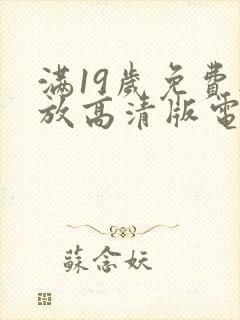 满19歲免費
放高清版電
蘇念妖